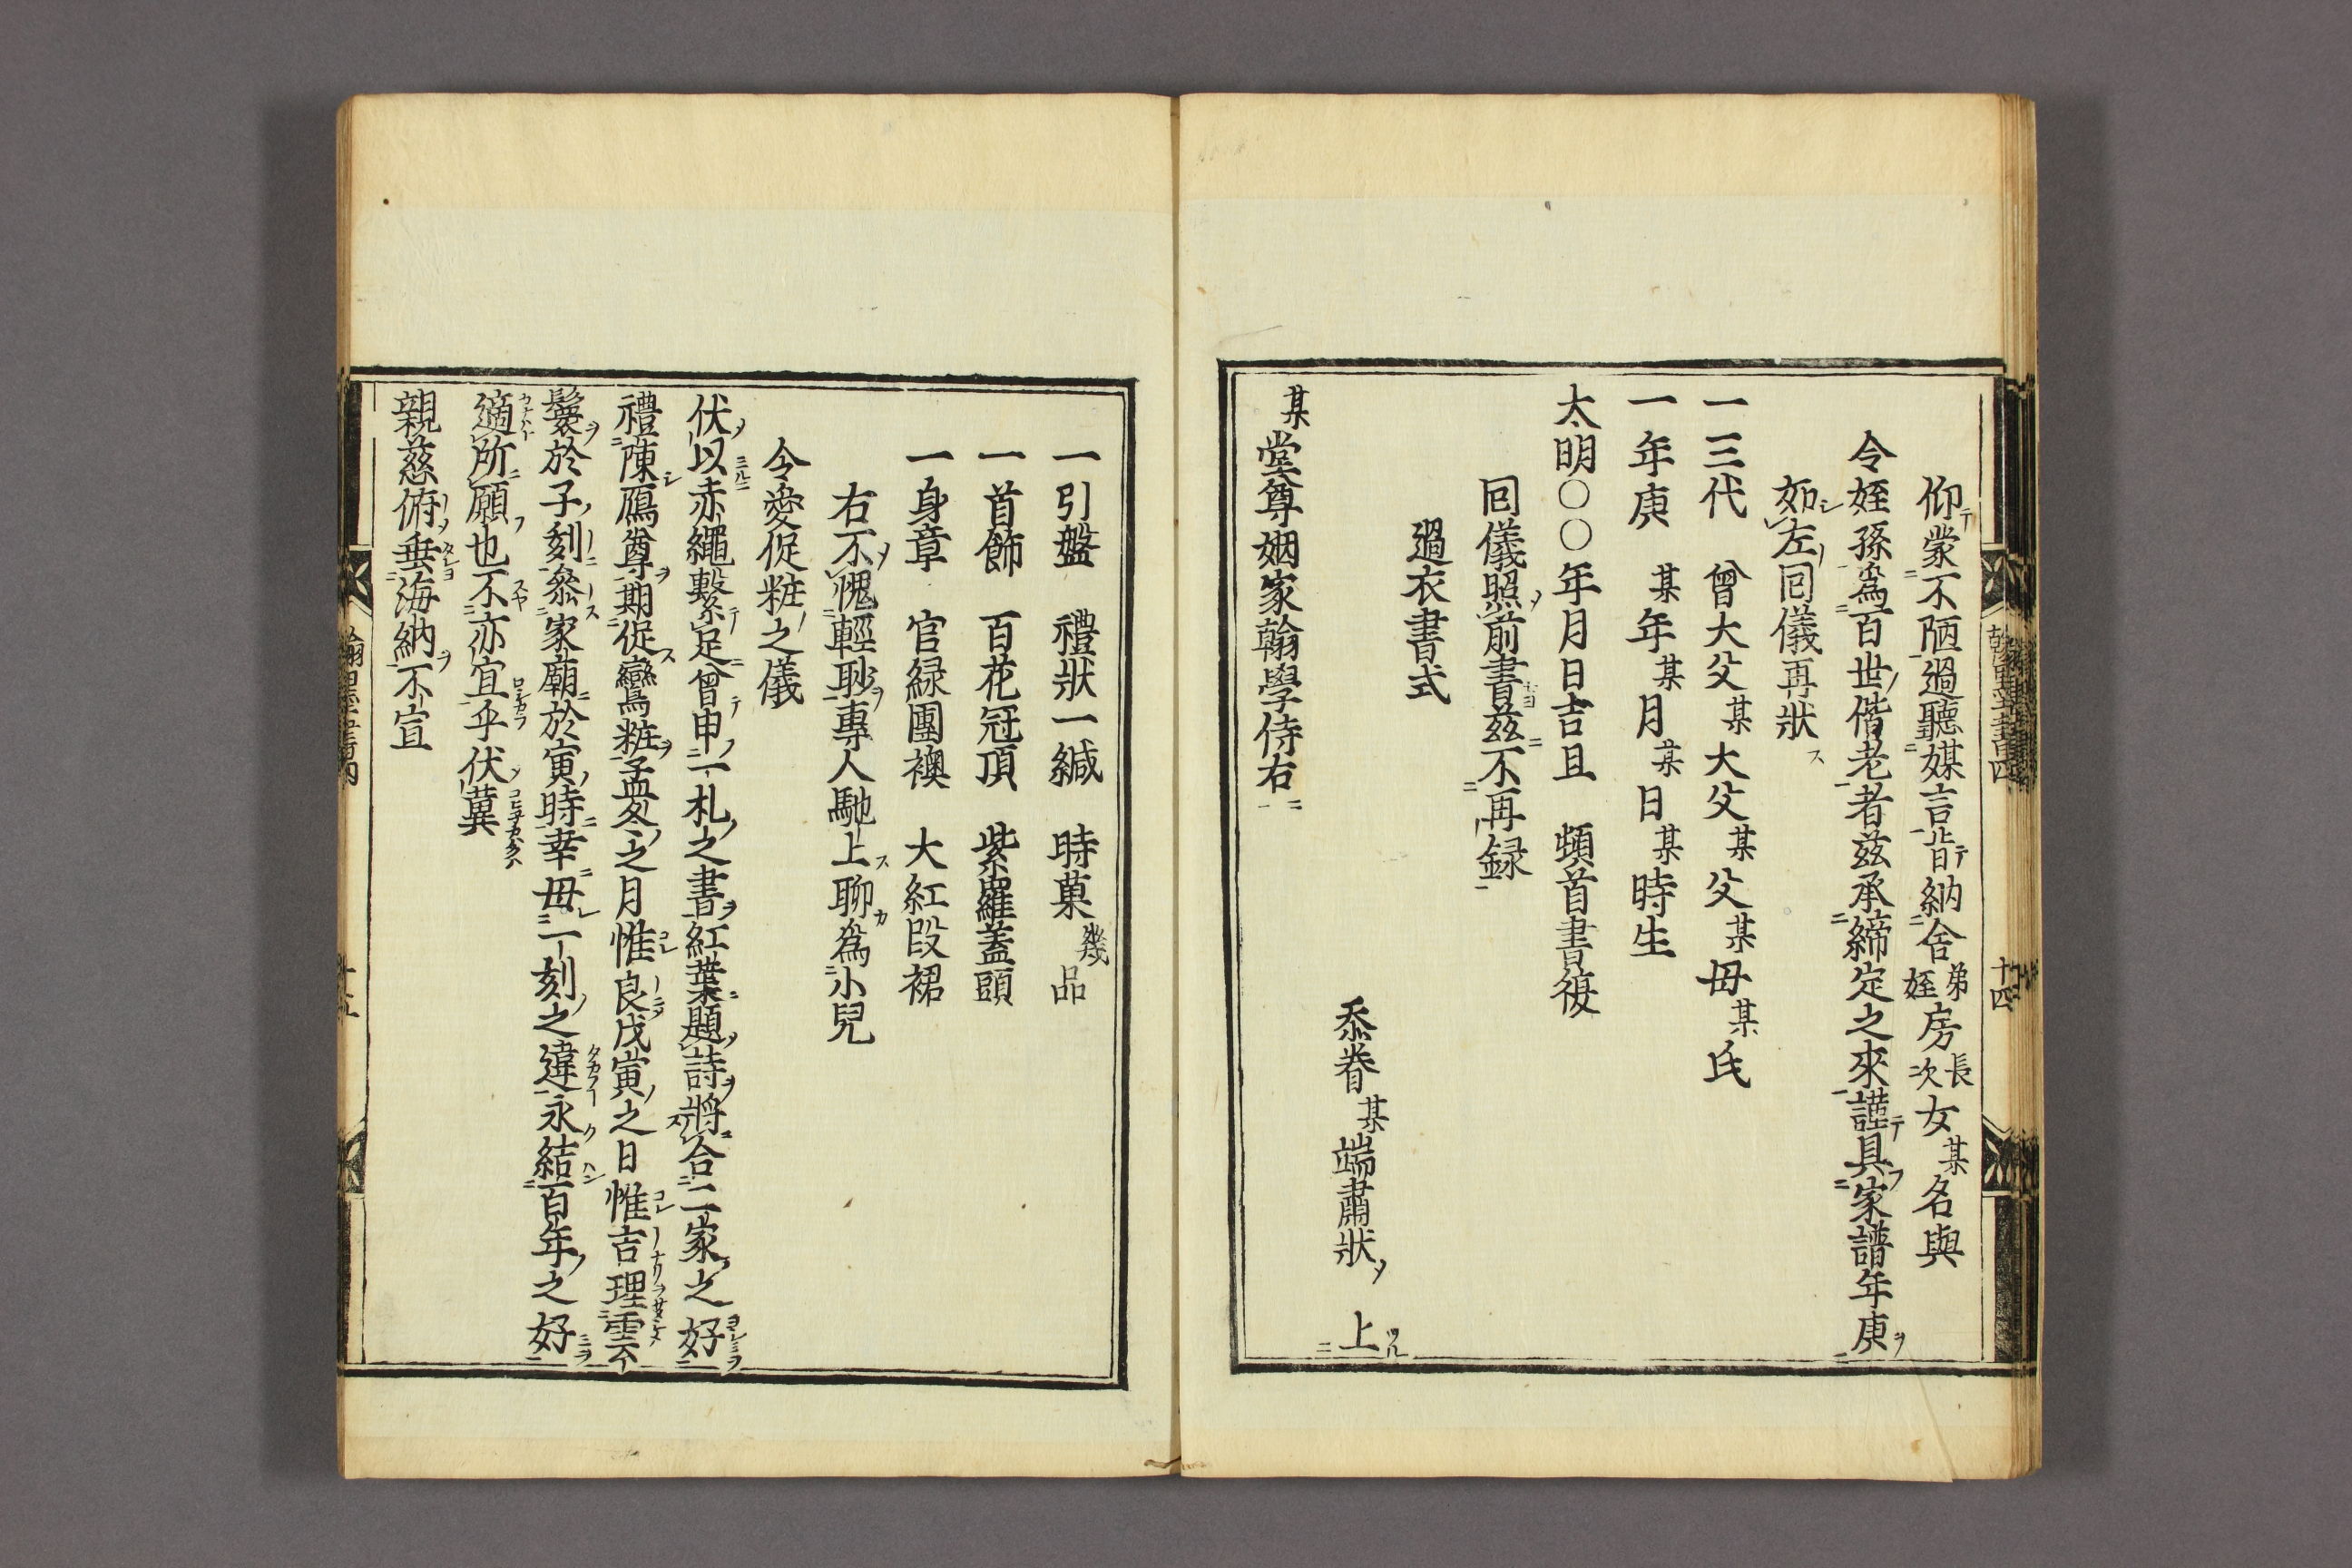 仰蒙不陋過聽媒言肯納舍弟姪房長次女某名與
令姪孫爲百世偕老者兹承締定之來謹具家譜年庚
如左囘儀再狀
一三代　曾大父某大父某父某母某氏
一年庚　某年某月某日某時生
太明○○年月日吉旦　頓首書復
囘儀照前書兹不再録
過衣書式
忝眷某端肅狀　上
某堂尊姻家翰學侍右
一引盤　禮狀一緘　時菓幾品
一首飾　百花冠頂　紫羅蓋頭
一身章　官緑團襖　大紅段裙
右不愧輕尠專人馳上聊爲小兒
令愛促粧之儀
伏以赤繩繫足曾申一札之書紅葉題詩將合二家之好
禮陳鴈尊期促鸞粧孟冬之月惟良戊寅之日惟吉理雲
鬟於子刻叅家廟於寅時幸毋一刻之違永結百年之好
適所願也不亦宜乎伏冀
親慈俯垂海納不宣
十四